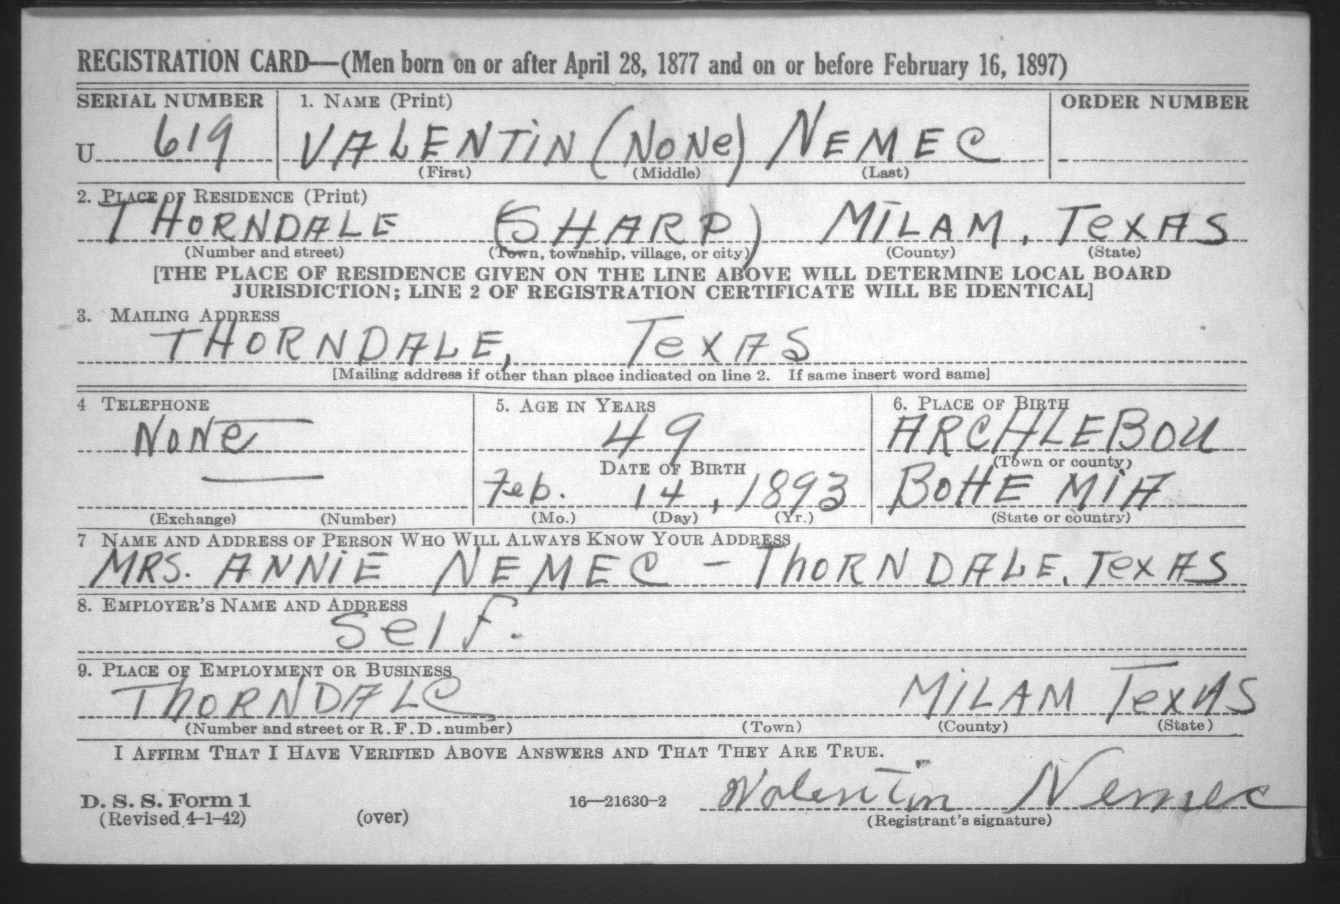 REGISTRATION CARD—(Men born on or after April 28, 1877 and on or before February 16, 1897)
SERIAL NUMBER 1. NAME (Print) ORDER NUMBER
U 619 VALENTIN (NONE) NEMEC
(First) (Middle) (Last)
2. PLACE OF RESIDENCE (Print)
THORNDALE (SHARP) MILAM, TEXAS
(Number and street) (Town, township, village, or city) (County) (State)
[THE PLACE OF RESIDENCE GIVEN ON THE LINE ABOVE WILL DETERMINE LOCAL BOARD
JURISDICTION; LINE 2 OF REGISTRATION CERTIFICATE WILL BE IDENTICAL]
3. MAILING ADDRESS
THORNDALE, TEXAS
[Mailing address if other than place indicated on line 2. If same insert word same]
4 TELEPHONE 5. AGE IN YEARS 6. PLACE OF BIRTH
NONE 49 ARCHLEBOU
DATE OF BIRTH (Town or county)
Feb. 14, 1893 BOHEMIA
(Exchange) (Number) (Mo.) (Day) (Yr.) (State or country)
7 NAME AND ADDRESS OF PERSON WHO WILL ALWAYS KNOW YOUR ADDRESS
MRS. ANNIE NEMEC – THORNDALE, TEXAS
8. EMPLOYER'S NAME AND ADDRESS
Self.
9. PLACE OF EMPLOYMENT OR BUSINESS
THORNDALE MILAM TEXAS
(Number and street or R. F. D. number) (Town) (County) (State)
I AFFIRM THAT I HAVE VERIFIED ABOVE ANSWERS AND THAT THEY ARE TRUE.
D. S. S. Form 1 16—21630-2 Valentin Nemec
(Revised 4-1-42) (over) (Registrant's signature)